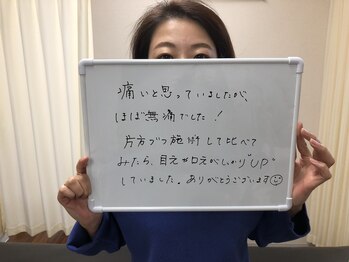 痛いと思っていましたが、
ほぼ無痛でした！
片方づつ施術して比べて
みたら、目元が口元がしっかり"UP"
していました。ありがとうございます☺